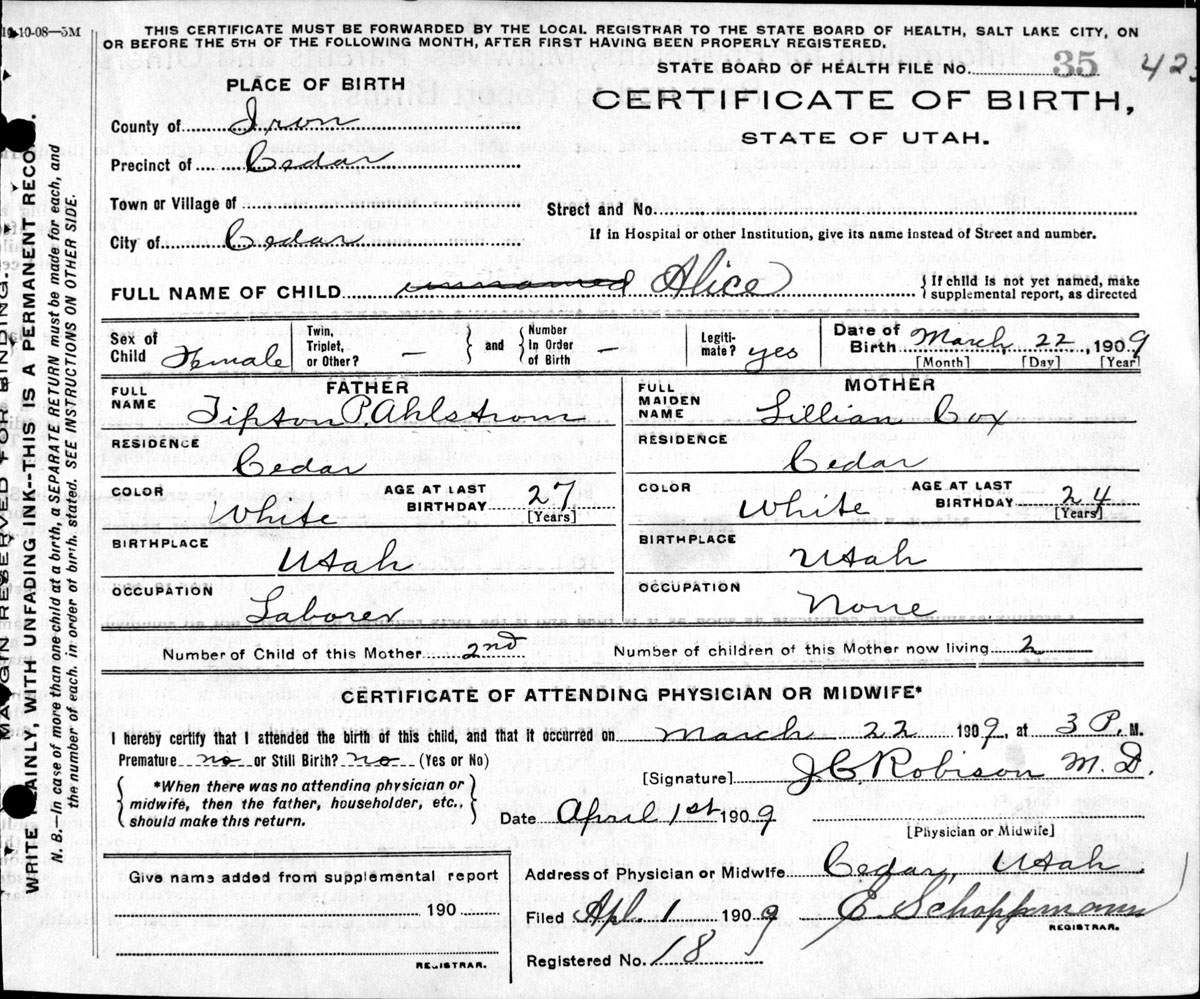 10-10-08—5M
THIS CERTIFICATE MUST BE FORWARDED BY THE LOCAL REGISTRAR TO THE STATE BOARD OF HEALTH, SALT LAKE CITY, ON
OR BEFORE THE 5TH OF THE FOLLOWING MONTH, AFTER FIRST HAVING BEEN PROPERLY REGISTERED.
STATE BOARD OF HEALTH FILE No. 35 42
CERTIFICATE OF BIRTH,
STATE OF UTAH.
PLACE OF BIRTH
County of Iron
Precinct of Cedar
Town or Village of
City of Cedar
Street and No.
If in Hospital or other Institution, give its name instead of Street and number.
FULL NAME OF CHILD unnamed Alice
If child is not yet named, make
supplemental report, as directed
Sex of Child Female
Twin, Triplet, or Other? — and Number In Order of Birth —
Legiti-mate? yes
Date of Birth March 22, 1909
[Month] [Day] [Year]
FATHER
FULL NAME Tipton P. Ahlstrom
RESIDENCE Cedar
COLOR White AGE AT LAST BIRTHDAY 27 [Years]
BIRTHPLACE Utah
OCCUPATION Laborer
MOTHER
FULL MAIDEN NAME Lillian Cox
RESIDENCE Cedar
COLOR White AGE AT LAST BIRTHDAY 24 [Years]
BIRTHPLACE Utah
OCCUPATION None
Number of Child of this Mother 2nd Number of children of this Mother now living 2
CERTIFICATE OF ATTENDING PHYSICIAN OR MIDWIFE*
I hereby certify that I attended the birth of this child, and that it occurred on March 22 1909, at 3 P. M.
Premature no or Still Birth? no (Yes or No)
*When there was no attending physician or
midwife, then the father, householder, etc.,
should make this return.
[Signature] J C Robison M. D.
Date April 1st 1909
[Physician or Midwife]
Give name added from supplemental report
190
REGISTRAR.
Address of Physician or Midwife Cedar, Utah
Filed Apl. 1 1909 E. Schoppmann
REGISTRAR.
Registered No. 18
MARGIN RESERVED FOR BINDING.
WRITE PLAINLY, WITH UNFADING INK--THIS IS A PERMANENT RECORD.
N. B. In case of more than one child at a birth, a SEPARATE RETURN must be made for each, and
the number of each, in order of birth, stated. SEE INSTRUCTIONS ON OTHER SIDE.